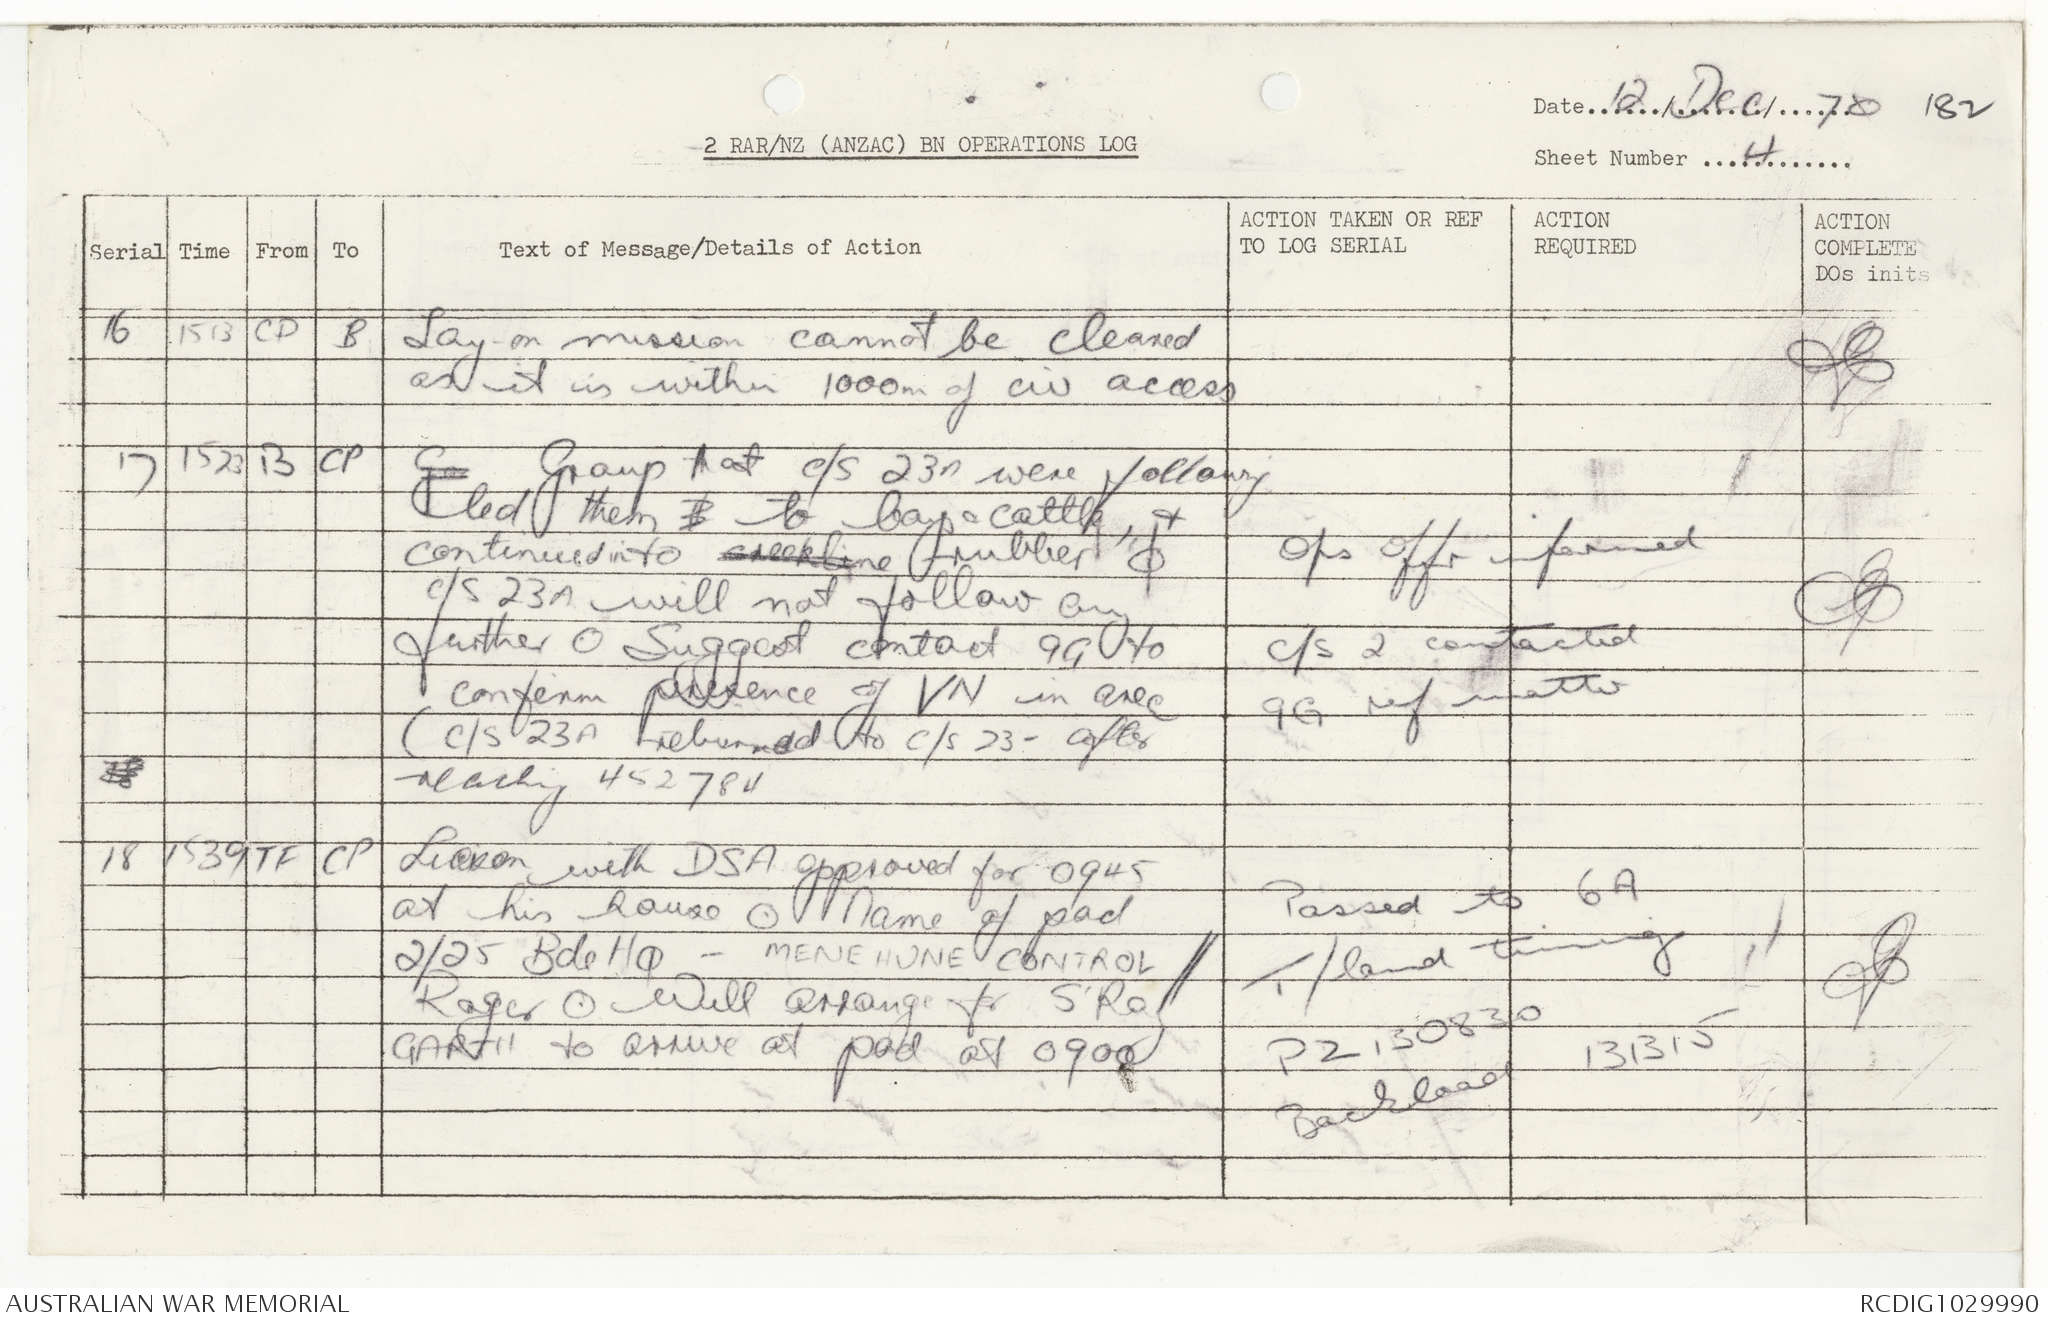 Date 12/Dec/70 182
2 RAR/NZ (ANZAC) BN OPERATIONS LOG
Sheet Number 4
Serial Time From To Text of Message/Details of Action ACTION TAKEN OR REF TO LOG SERIAL ACTION REQUIRED ACTION COMPLETE DOs inits
16 1513 CP B Lay-on mission cannot be cleared
as it is within 1000m of civ access
17 1523 B CP Group that c/s 23A were following
led them to cattle, +
continued into creekline rubber
Ops offr informed
c/s 23A will not follow any
further O Suggest contact 9G to
c/s 2 contacted
confirm presence of VN in area
9G ref matter
(c/s 23A returned to c/s 23- after
reaching 452784
18 1539 TF CP Liaison with DSA approved for 0945
at his house O Name of pad
Passed to 6A
2/25 Bde HQ - MENEHUNE CONTROL
land timing
Roger O Will arrange for S'Ray
GARTH to arrive at pad at 0900
PZ 130830
131315
Backload
AUSTRALIAN WAR MEMORIAL
RCDIG1029990